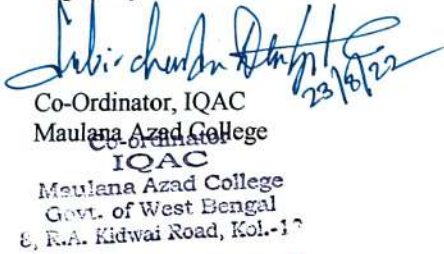 Subir Chandra Dasgupta
23/8/22
Co-Ordinator, IQAC
Maulana Azad College
Co-ordinator
IQAC
Maulana Azad College
Govt. of West Bengal
8, R.A. Kidwai Road, Kol.-13